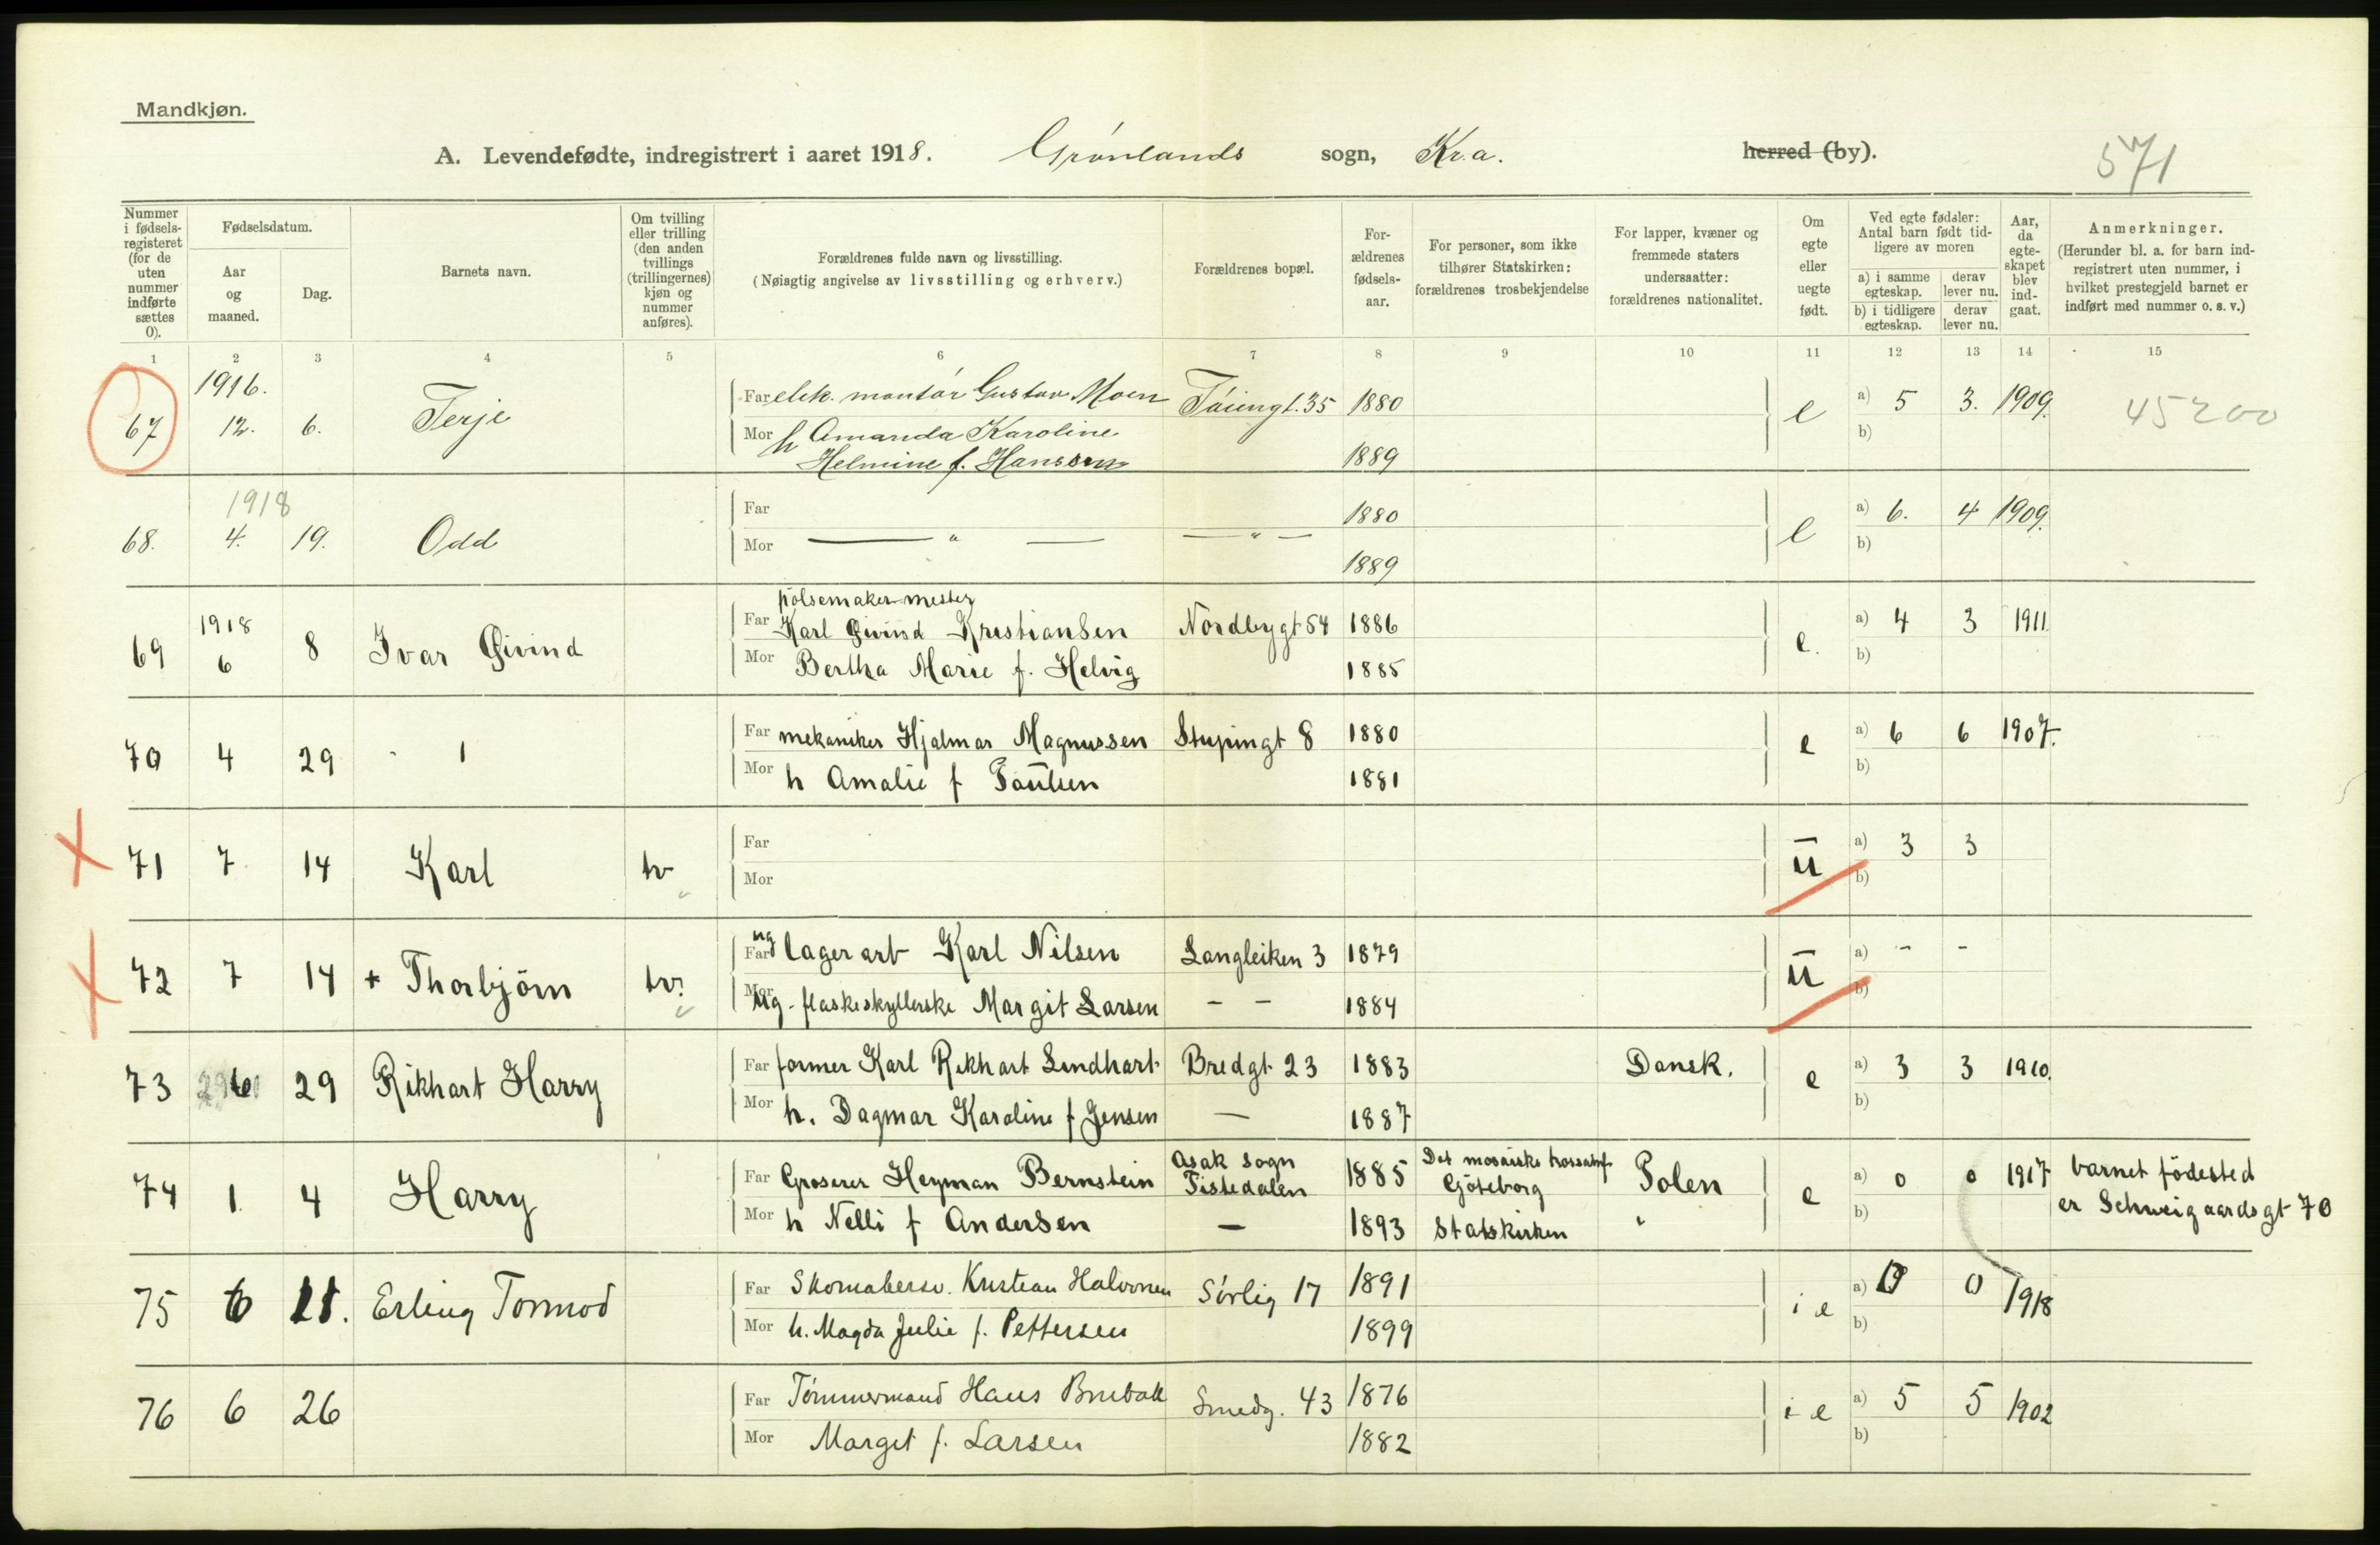 Mandkjøn.
A. Levendefødte, indregistrert i aaret 1918. Grønlands sogn, Kr.a. herred (by).
571
Nummer i fødsels-registeret (for de uten nummer indførte sættes 0).
Fødselsdatum.
Aar og maaned.
Dag.
Barnets navn.
Om tvilling eller trilling (den anden tvillings (trillingernes) kjøn og nummer anføres).
Forældrenes fulde navn og livsstilling.
(Nøiagtig angivelse av livsstilling og erhverv.)
Forældrenes bopæl.
For-ældrenes fødsels-aar.
For personer, som ikke tilhører Statskirken: forældrenes trosbekjendelse
For lapper, kvæner og fremmede staters undersaatter: forældrenes nationalitet.
Om egte eller uegte født.
Ved egte fødsler: Antal barn født tid-ligere av moren
a) i samme egteskap.
derav lever nu.
b) i tidligere egteskap.
derav lever nu.
Aar, da egte-skapet blev ind-gaat.
Anmerkninger.
(Herunder bl. a. for barn ind-registrert uten nummer, i hvilket prestegjeld barnet er indført med nummer o. s. v.)
1 2 3 4 5 6 7 8 9 10 11 12 13 14 15
1916.
67 12. 6. Terje Far elek. montør Gustav Moen Tøiengt. 35 1880 e a) 5 3. 1909. 45200
Mor h Amanda Karoline b)
Helmine f. Hanssen 1889
1918
68. 4. 19. Odd Far 1880 e a) 6. 4 1909.
Mor — " — — " — 1889 b)
pölsemakermester
1918
69 6 8 Ivar Øivind Far Karl Øivind Kristiansen Nordbygt 54 1886 e. a) 4 3 1911
Mor Bertha Marie f. Helvig 1885 b)
70 4 29 - 1 Far mekaniker Hjalmar Magnussen Stupingt 8 1880 e a) 6 6 1907.
Mor h Amalie f Paulsen 1881 b)
71 7 14 Karl tv Far u a) 3 3
Mor b)
72 7 14 + Thorbjörn tv. Far ug lagerarb Karl Nilsen Langleiken 3 1879 u a) - -
Mor Ug. flaskeskyllerske Margit Larsen — — 1884 b)
73 6 29 Rikhart Harry Far former Karl Rikhart Lindhart Bredgt. 23 1883 Dansk. e a) 3 3 1910.
Mor h. Dagmar Karoline f Jensen — 1887 b)
Asak sogn Det mosaiske trossamf
74 1 4 Harry Far Groserer Heyman Bernstein Tistedalen 1885 Göteborg Polen e a) 0 0 1917 barnet födested
er Schweigaardsgt 70
Mor h Nelli f Andersen — 1893 Statskirken " b)
75 6 11. Erling Tormod Far Skomakersv. Kristian Halvorsen Sörlig 17 1891 i e a) 0 0 1918
Mor h. Magda Julie f. Pettersen 1899 b)
76 6 26 Far Tömmermand Hans Brubak Smedg. 43 1876 i e a) 5 5 1902
Mor Margit f. Larsen 1882 b)